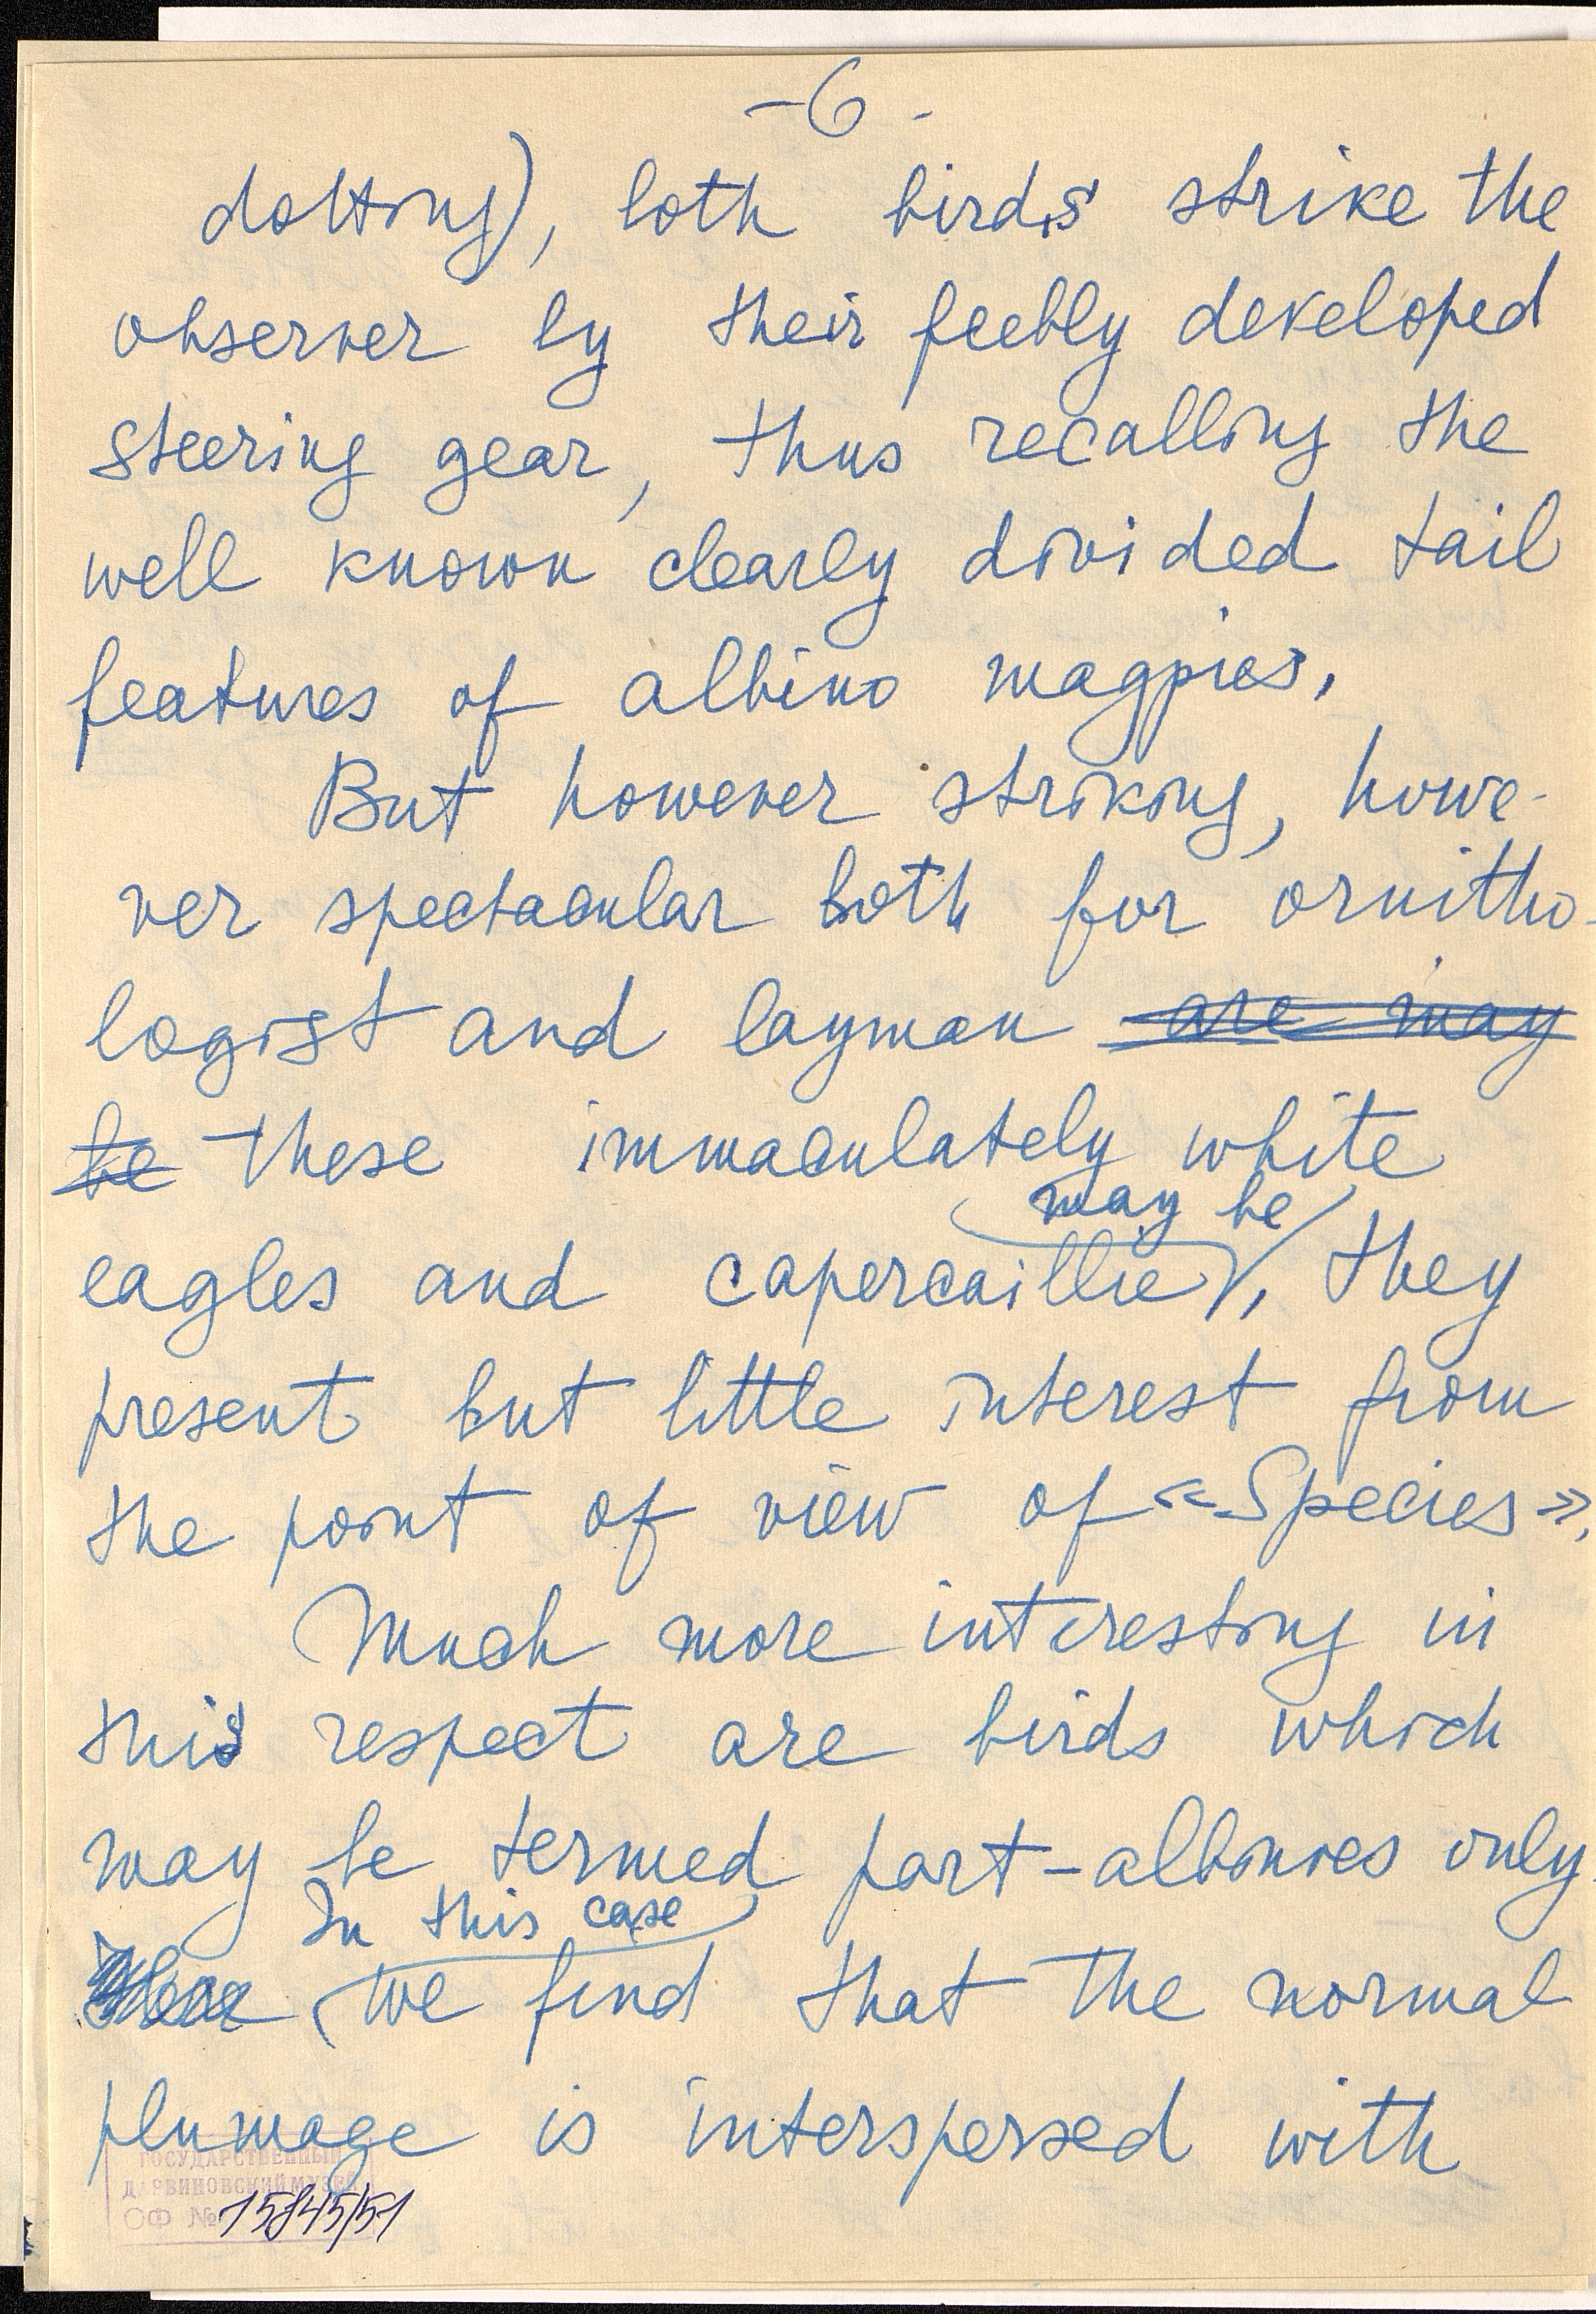 -6-
dotting), both birds strike the
observer by their feebly developed
steering gear, thus recalling the
well known clearly divided tail
features of albino magpies.
But however striking, howe-
ver spectacular both for ornitho-
logist and layman are may
be these immaculately white
may be
eagles and capercaillie, they
present but little interest from
the point of view of «Species».
Much more interesting in
this respect are birds which
may be termed part-albinoes only.
In this case
we find that the normal
plumage is interspersed with
ГОСУДАРСТВЕННЫЙ
ДАРВИНОВСКИЙ МУЗЕЙ
ОФ № 15845/51